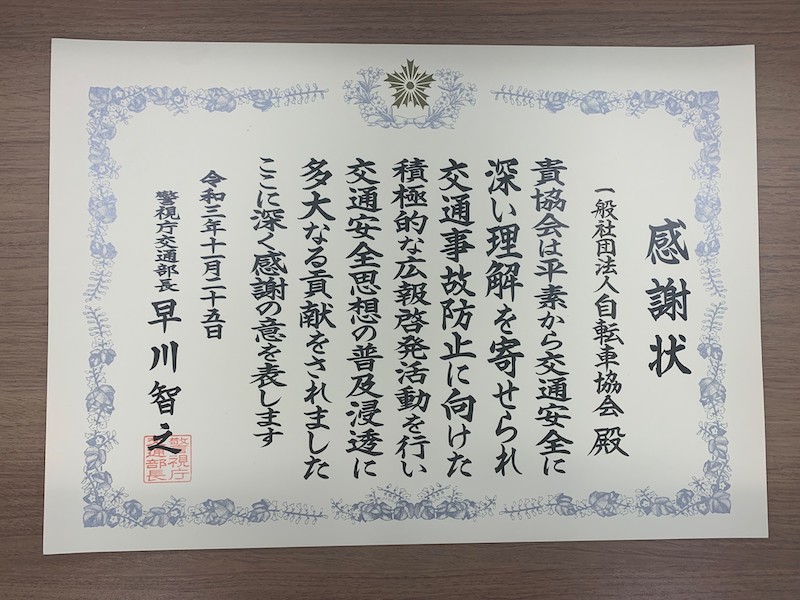 感謝状
一般社団法人自転車協会 殿
貴協会は平素から交通安全に
深い理解を寄せられ
交通事故防止に向けた
積極的な広報啓発活動を行い
交通安全思想の普及浸透に
多大なる貢献をされました
ここに深く感謝の意を表します
令和三年十一月二十五日
警視庁交通部長 早川智之
警視庁
交通部長